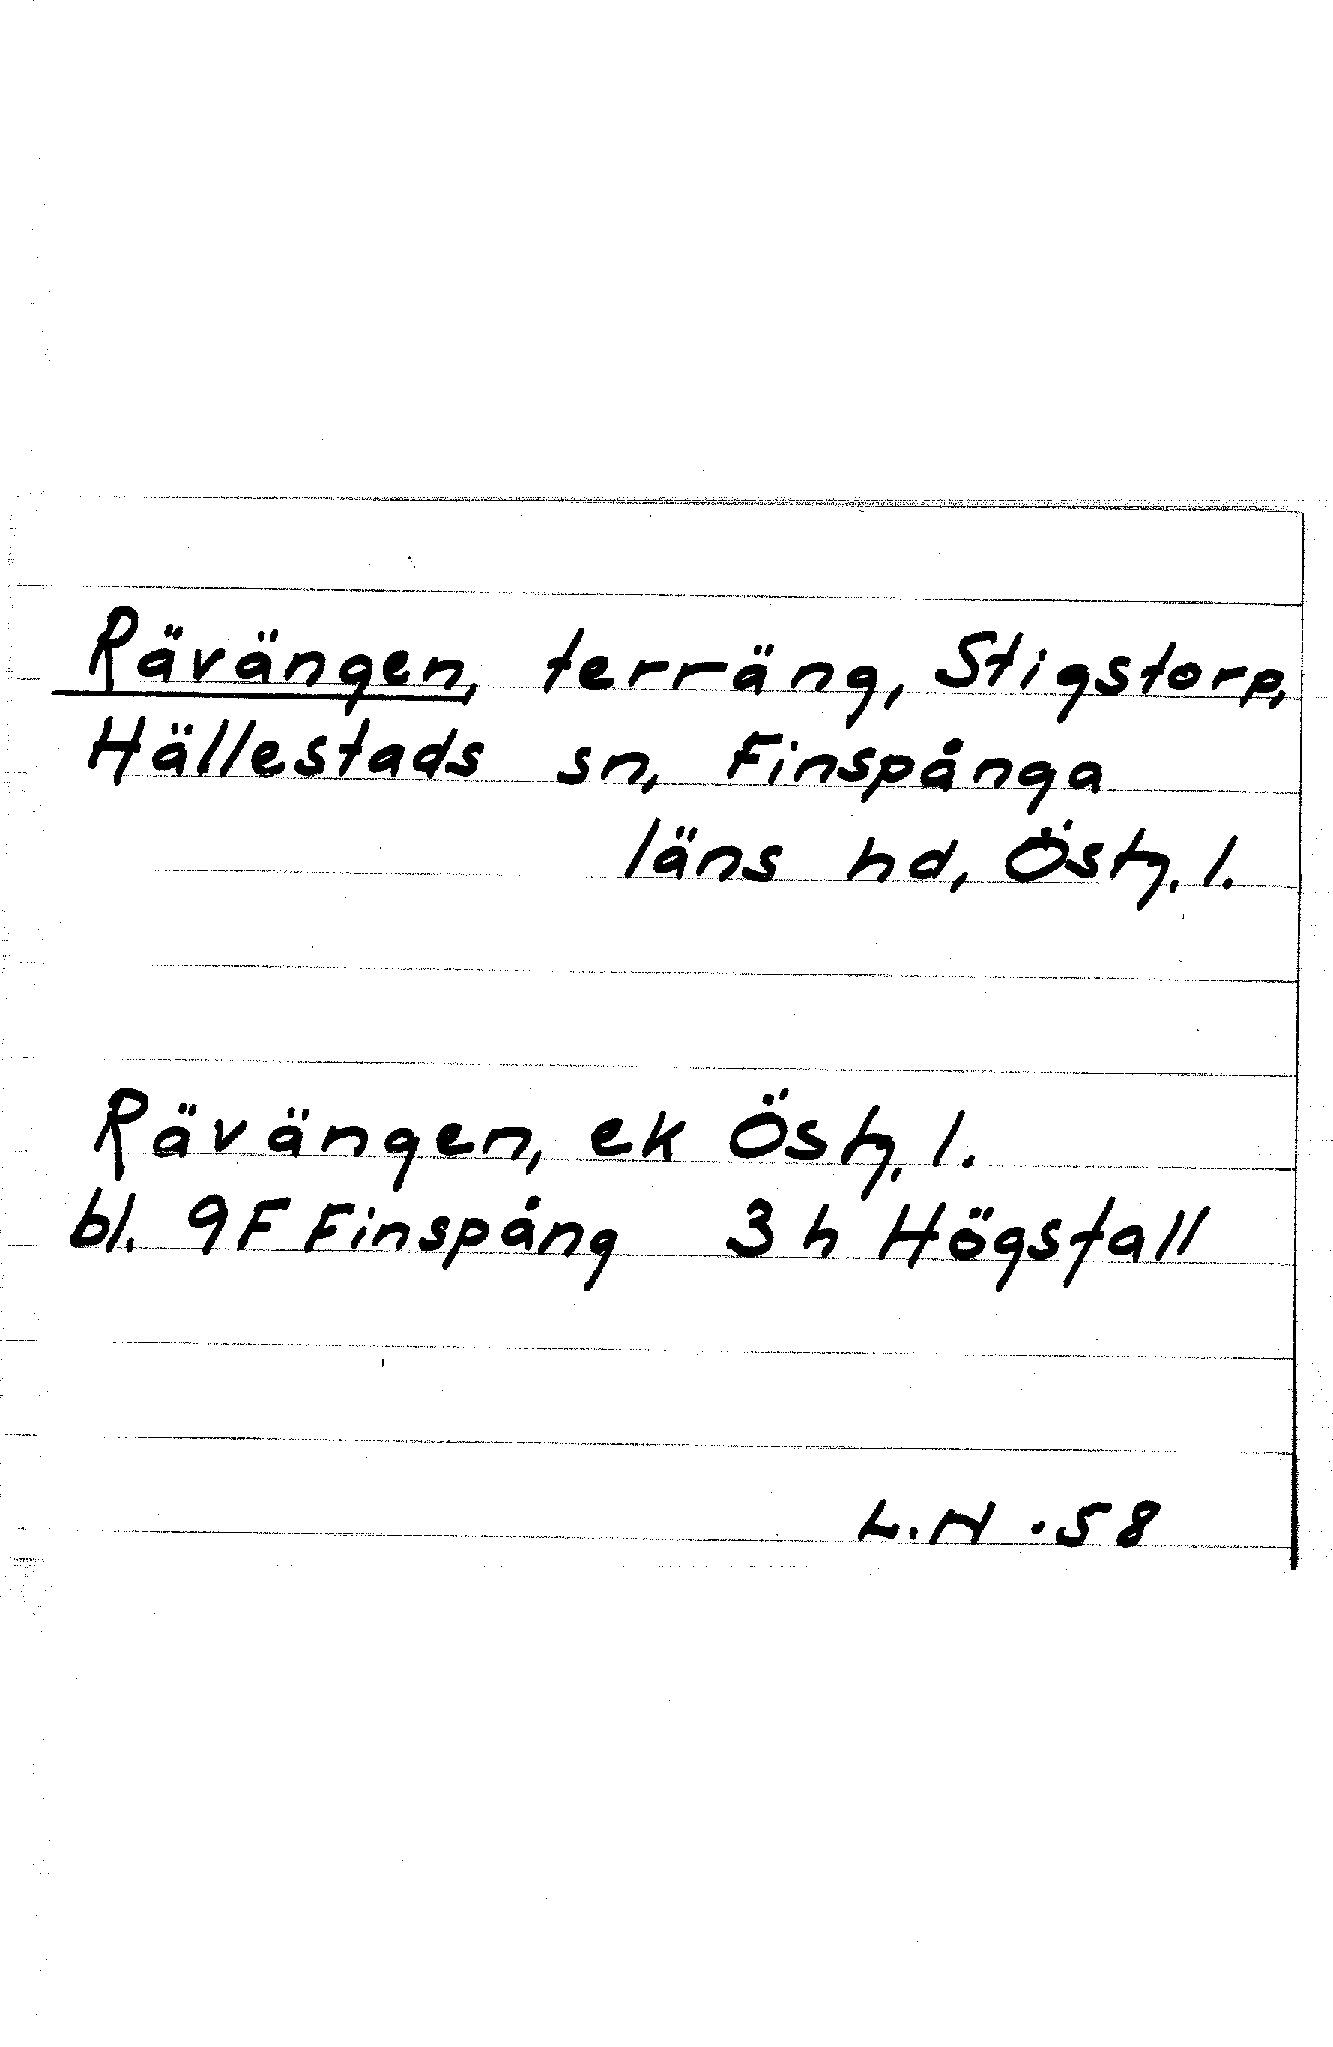 Rävängen, terräng, Stigstorp,
Hällestads sn, Finspånga
läns hd, Östg. l.
Rävängen, ek Östg. l.
bl. 9F Finspång 3 h Högstall
L.N .58